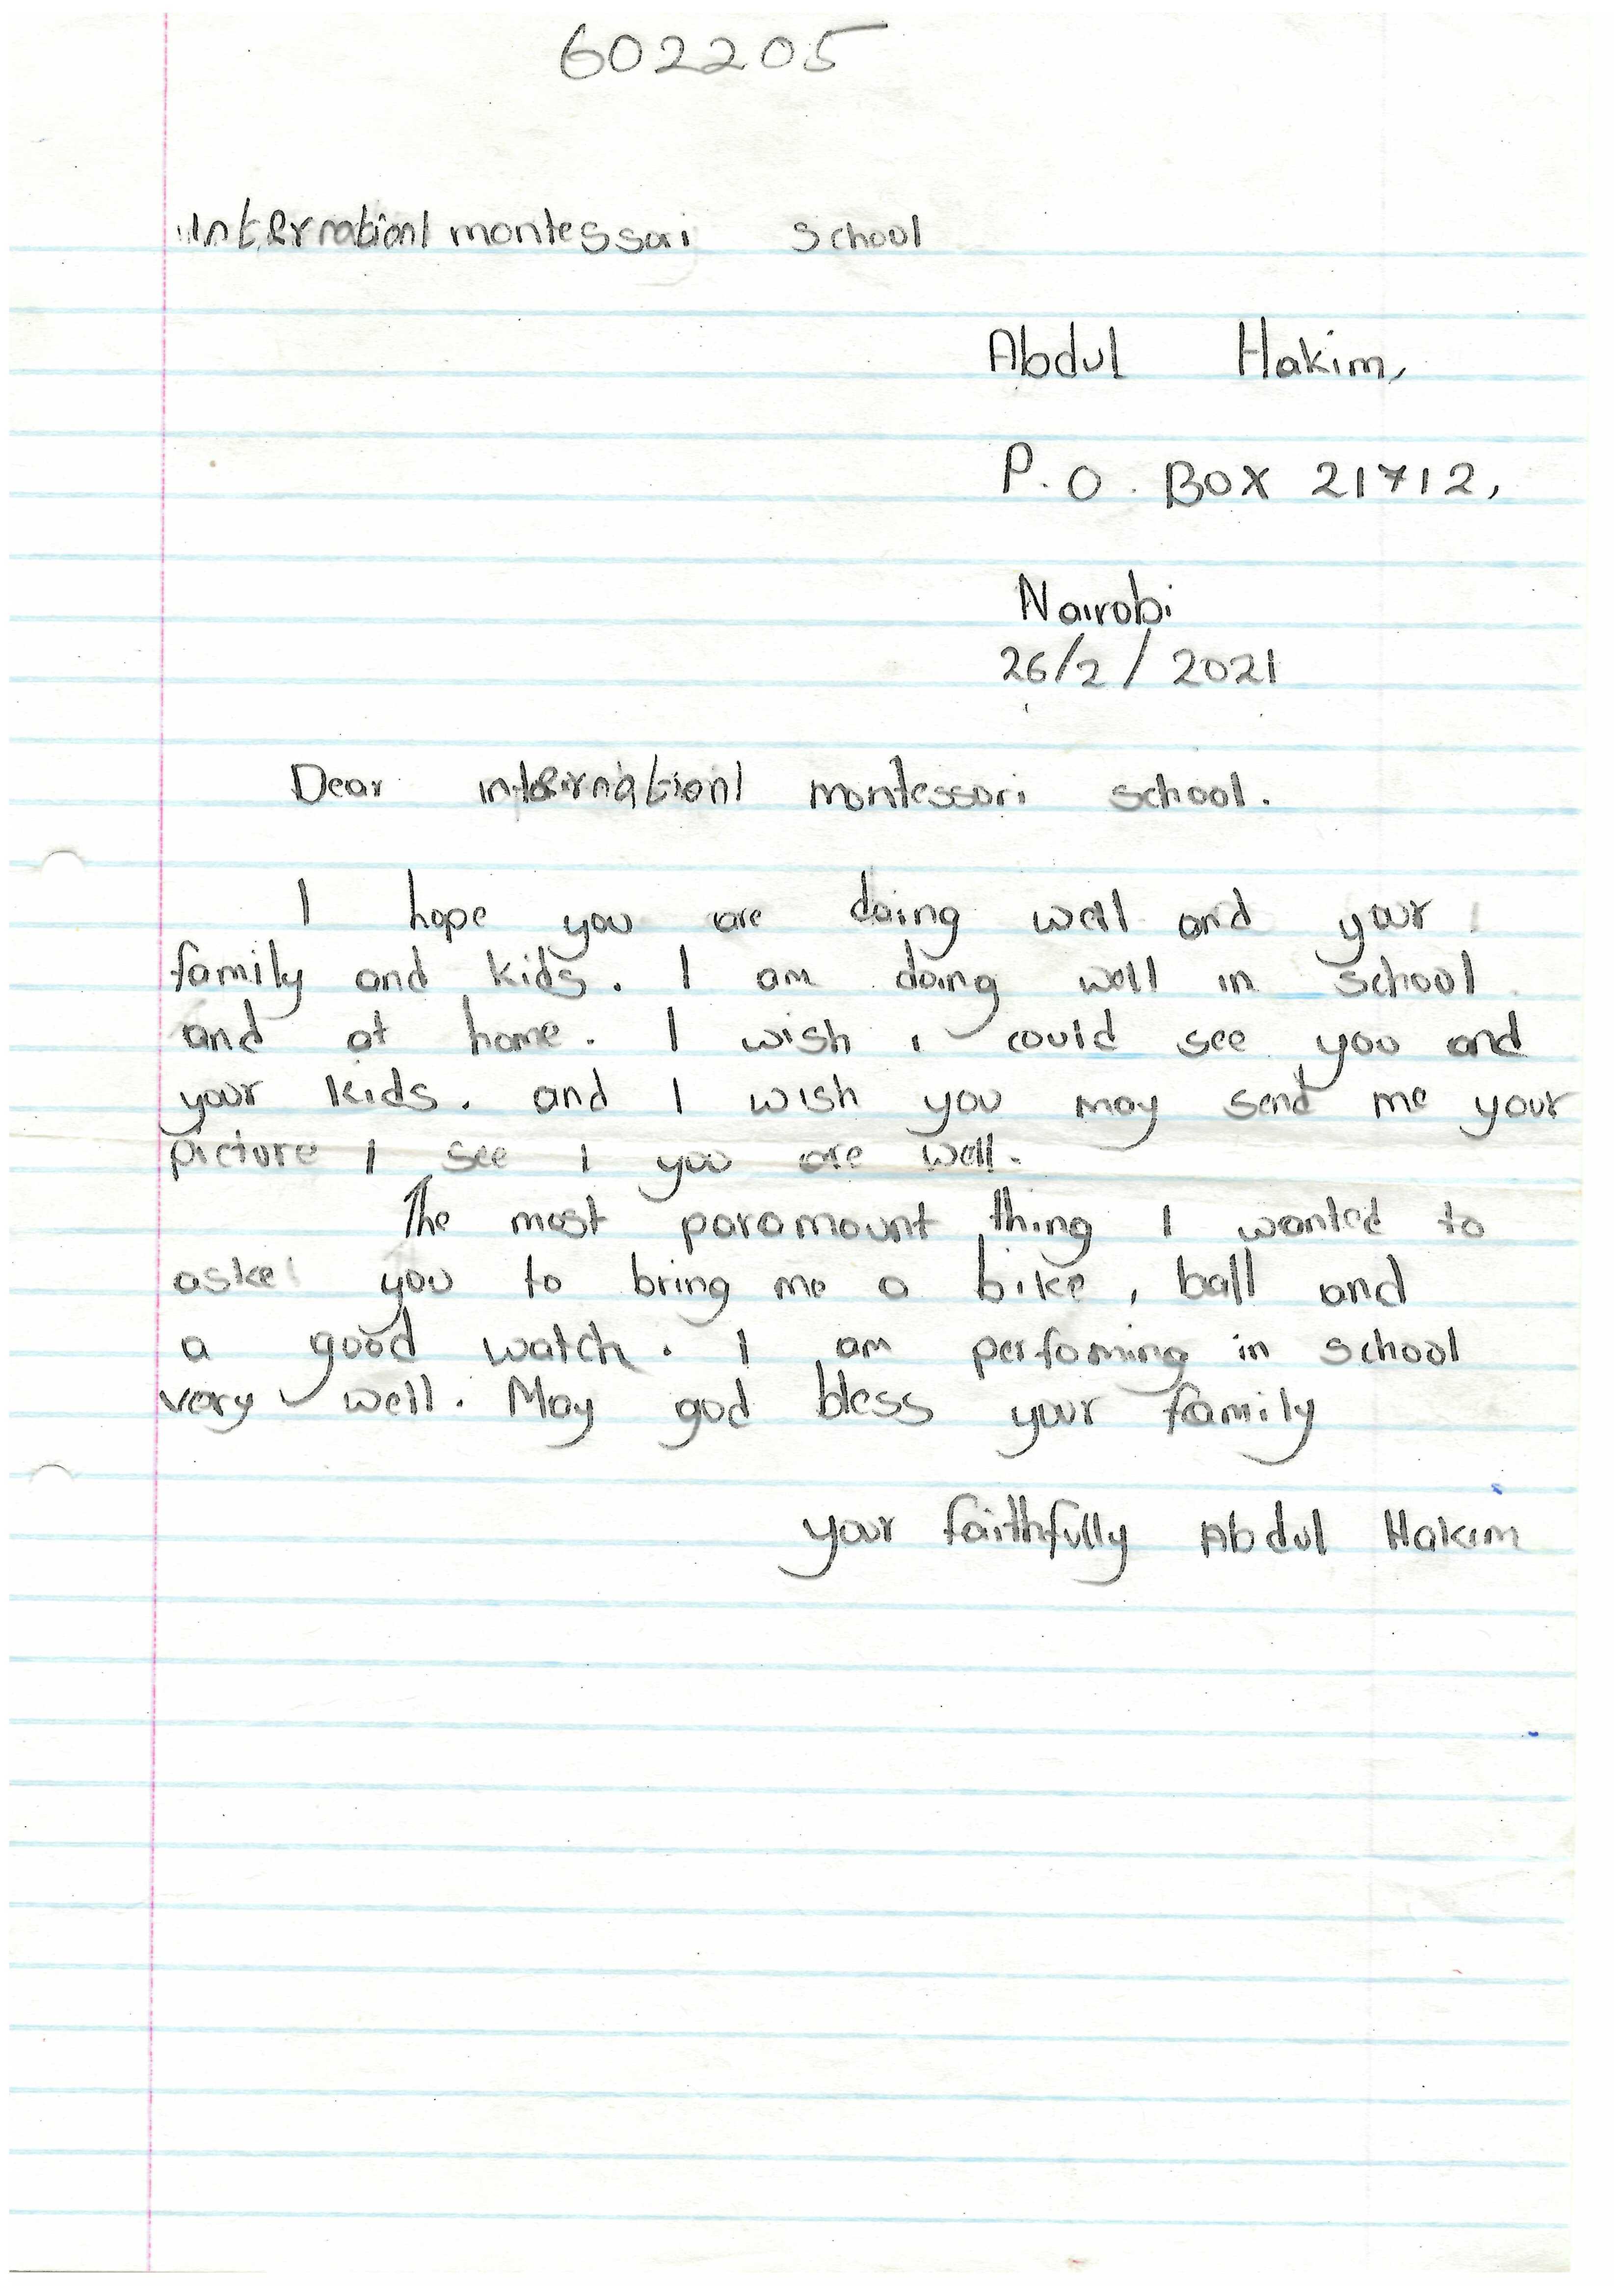 602205
Internationl montessori school
Abdul Hakim,
P.O. BOX 21712,
Nairobi
26/2/2021
Dear internationl montessori school.
I hope you are doing well and your
family and kids. I am doing well in school
and at home. I wish i could see you and
your kids. and I wish you may send me your
picture I see I you are well.
The most paramount thing I wanted to
aske you to bring me a bike, ball and
a good watch. I am perfoming in school
very well. May god bless your family
your faithfully Abdul Hakim